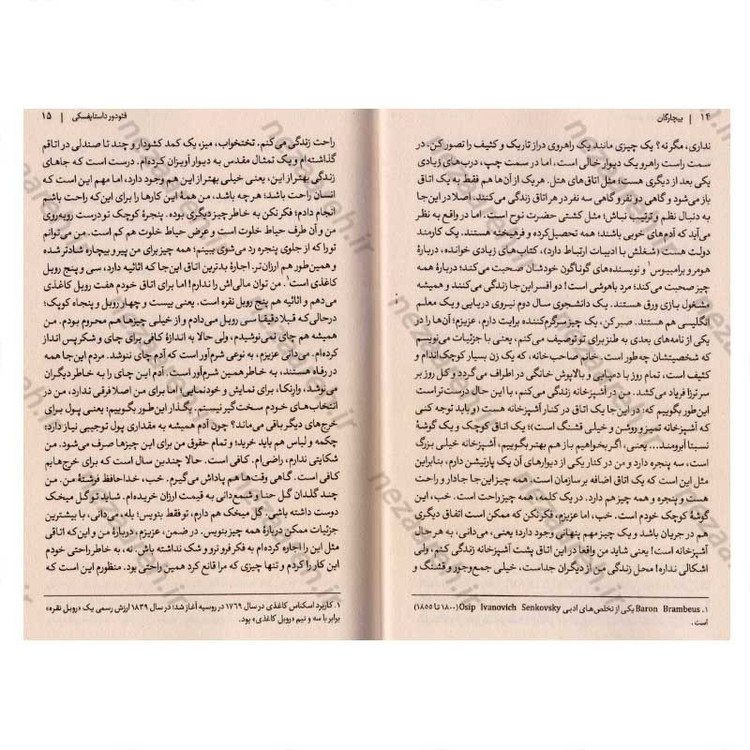 ۱۴ | بیچارگان
نداری، مگر نه؟ یک چیزی مانند یک راهروی دراز تاریک و کثیف را تصور کن. در
سمت راست راهرو یک دیوار خالی است، اما در سمت چپ، درب‌های زیادی
یکی بعد از دیگری هست؛ مثل اتاق‌های هتل. هریک از آن‌ها هم فقط به یک اتاق
باز می‌شود و گاهی دو نفر و گاهی سه نفر در هر اتاق زندگی می‌کنند. اصلا در این‌جا
به دنبال نظم و ترتیب نباش؛ مثل کشتی حضرت نوح است. اما در واقع به نظر
می‌آید که آدم‌های خوبی باشند؛ همه تحصیل‌کرده و فرهیخته هستند. یک کارمند
دولت هست (شغلش با ادبیات ارتباط دارد)، کتاب‌های زیادی خوانده، دربارهٔ
هومر و برامبیوس۱ و نویسنده‌های گوناگون خودشان صحبت می‌کند؛ دربارهٔ همه
چیز صحبت می‌کند؛ مرد باهوشی است! دو افسر این‌جا زندگی می‌کنند و همیشه
مشغول بازی ورق هستند. یک دانشجوی سال دوم نیروی دریایی و یک معلم
انگلیسی هم هستند. صبر کن، یک چیز سرگرم‌کننده برایت دارم، عزیزم؛ آن‌ها را در
یکی از نامه‌های بعدی به طنز برای تو توصیف می‌کنم، یعنی با جزئیات می‌نویسم
که شخصیتشان چه‌طور است. خانم صاحب‌خانه، که یک زن بسیار کوچک‌اندام و
کثیف است، تمام روز با دمپایی و بالاپوش خانگی در اطراف می‌گردد و کل روز بر
سر ترزا فریاد می‌کشد. من در آشپزخانه زندگی می‌کنم، با این حال درست‌تر است
این‌طور بگوییم که: در این‌جا یک اتاق در کنار آشپزخانه هست (و باید توجه کنی
که آشپزخانه تمیز و روشن و خیلی قشنگ است)؛ یک اتاق کوچک و یک گوشهٔ
نسبتا آبرومند... یعنی، اگر بخواهیم باز هم بهتر بگوییم، آشپزخانه خیلی بزرگ
است، سه پنجره دارد و من در کنار یکی از دیوارهای آن یک پارتیشن دارم، بنابراین
مثل این است که یک اتاق اضافه بر سازمان است؛ همه چیز این‌جا جادار و راحت
هست و پنجره و همه چیز هم دارد. در یک کلمه، همه چیز راحت است. خب، این
گوشهٔ کوچک خودم است. خب، اما عزیزم، فکر نکن که ممکن است اتفاق دیگری
هم در جریان باشد و یک چیز مهم پنهانی وجود دارد؛ یعنی، می‌دانی، به هر حال
آشپزخانه است! یعنی شاید من واقعا در این اتاق پشت آشپزخانه زندگی کنم، ولی
اشکالی ندارد! محل زندگی من از دیگران جداست، خیلی جمع‌وجور و قشنگ و
۱. Baron Brambeus یکی از تخلص‌های ادبی Osip Ivanovich Senkovsky (۱۸۰۰ تا ۱۸۵۵)
است.
فئودور داستایفسکی | ۱۵
راحت زندگی می‌کنم. تختخواب، میز، یک کمد کشودار و چند تا صندلی در اتاقم
گذاشته‌ام و یک تمثال مقدس به دیوار آویزان کرده‌ام. درست است که جاهای
زندگی بهتر از این، یعنی خیلی بهتر از این هم وجود دارد، اما مهم این است که
انسان راحت باشد؛ هرچه باشد، من همهٔ این کارها را برای این‌که راحت باشم
انجام دادم؛ فکر نکن به خاطر چیز دیگری بوده. پنجرهٔ کوچک تو درست روبه‌روی
من و آن طرف حیاط خلوت است و عرض حیاط خلوت هم کم است. من می‌توانم
تو را که از جلوی پنجره رد می‌شوی ببینم؛ همه چیز برای من پیر و بیچاره شادتر شده
و همین‌طور هم ارزان‌تر. اجارهٔ بدترین اتاق این‌جا که اثاثیه دارد، سی و پنج روبل
کاغذی است۱. من توان مالی‌اش را ندارم! اما برای اتاق خودم هفت روبل کاغذی
می‌دهم و اثاثیه هم پنج روبل نقره است. یعنی بیست و چهار روبل و پنجاه کوپک؛
درحالی‌که قبلا دقیقا سی روبل می‌دادم و از خیلی چیزها هم محروم بودم. من
همیشه هم چای نمی‌نوشیدم، ولی حالا به اندازهٔ کافی برای چای و شکر پس انداز
کرده‌ام. می‌دانی عزیزم، به نوعی شرم‌آور است که آدم چای ننوشد. مردم این‌جا همه
در رفاه هستند، به خاطر همین شرم‌آور است. آدم این چای را به خاطر دیگران
می‌نوشد، وارنکا، برای نمایش و خودنمایی! اما برای من اصلا فرقی ندارد، من در
انتخاب‌های خودم سخت‌گیر نیستم. بگذار این‌طور بگوییم؛ یعنی پول برای
خرج‌های دیگر باقی می‌ماند؟ چون آدم همیشه به مقداری پول توجیبی نیاز دارد؛
چکمه و لباس هم باید خرید؛ و تمام حقوق من برای این چیزها صرف می‌شود. من
شکایتی ندارم، راضی‌ام. کافی است. حالا چندین سال است که برای خرج‌هایم
کافی است. گاهی وقت‌ها هم پاداش می‌گیرم. خب، خداحافظ فرشتهٔ من. من
چند گلدان گل حنا و شمع‌دانی به قیمت ارزان خریده‌ام. شاید تو گل میخک
دوست داشته باشی. گل میخک هم دارم، تو فقط بنویس؛ بله، می‌دانی، با بیشترین
جزئیات ممکن دربارهٔ همه چیز بنویس. در ضمن، عزیزم، دربارهٔ من و این‌که اتاقی
مثل این را اجاره کرده‌ام به فکر فرو نرو و شک نداشته باش. نه، به خاطر راحتی خودم
این کار را کردم و تنها چیزی که مرا قانع کرد همین راحتی بود. منظورم این است که
۱. کاربرد اسکناس کاغذی در سال ۱۷۶۹ در روسیه آغاز شد؛ در سال ۱۸۳۹ ارزش رسمی یک «روبل نقره»
برابر با سه و نیم «روبل کاغذی» بود.
nezaareh.ir